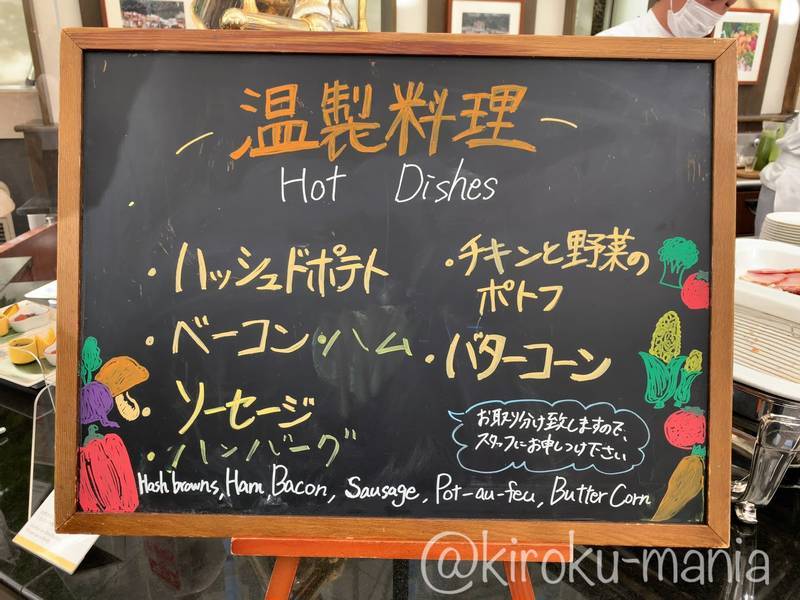 温製料理
Hot Dishes
・ハッシュドポテト
・ベーコン・ハム
・ソーセージ
・ハンバーグ
・チキンと野菜の
ポトフ
・バターコーン
お取り分け致しますので、
スタッフにお申しつけ下さい
Hash browns, Ham, Bacon, Sausage, Pot-au-feu, Butter Corn
@kiroku-mania